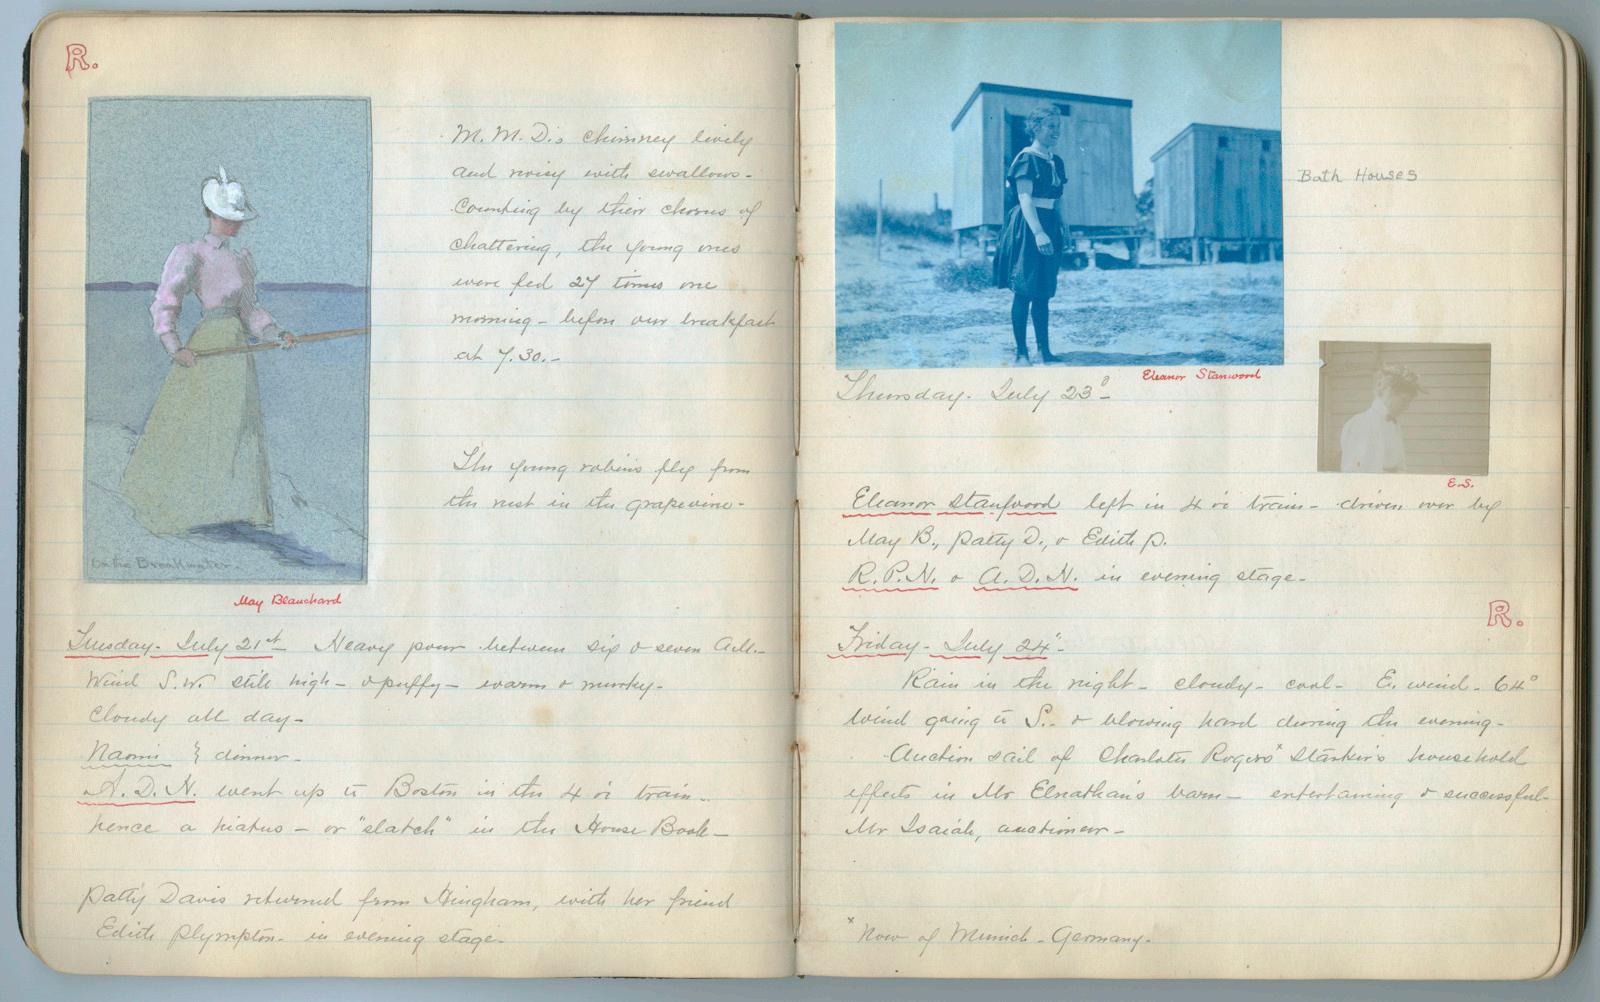 R.
M. M. D.'s chimney lively
and noisy with swallows -
Counting by their chorus of
chattering, the young ones
were fed 27 times one
morning - before our breakfast
at 7.30. -
The young robins fly from
the nest in the grapevine -
On the Breakwater.
May Blanchard
Tuesday - July 21st - Heavy pour between six & seven A.M. -
Wind S.W. still high - & puffy - warm & murky -
Cloudy all day -
Naomi } dinner -
A. D. N. went up to Boston in the 4 o'c train -
hence a hiatus - or "slatch" in the House Book -
Patty Davis returned from Hingham, with her friend
Edith Plympton - in evening stage -
Bath Houses
Eleanor Stanwood
Thursday - July 23d -
E.S.
Eleanor Stanwood left in 4 o'c train - driven over by
May B., Patty D., & Edith P.
R.P.N. & A.D.N. in evening stage -
R.
Friday - July 24" -
Rain in the night - cloudy - cool - E. wind - 64°
Wind going to S. - & blowing hard during the evening -
Auction sail of Charlotte Rogers' x household
effects in Mr Elnathan's barn - entertaining & successful -
Mr Isaiah, auctioneer -
x Now of Munich - Germany -